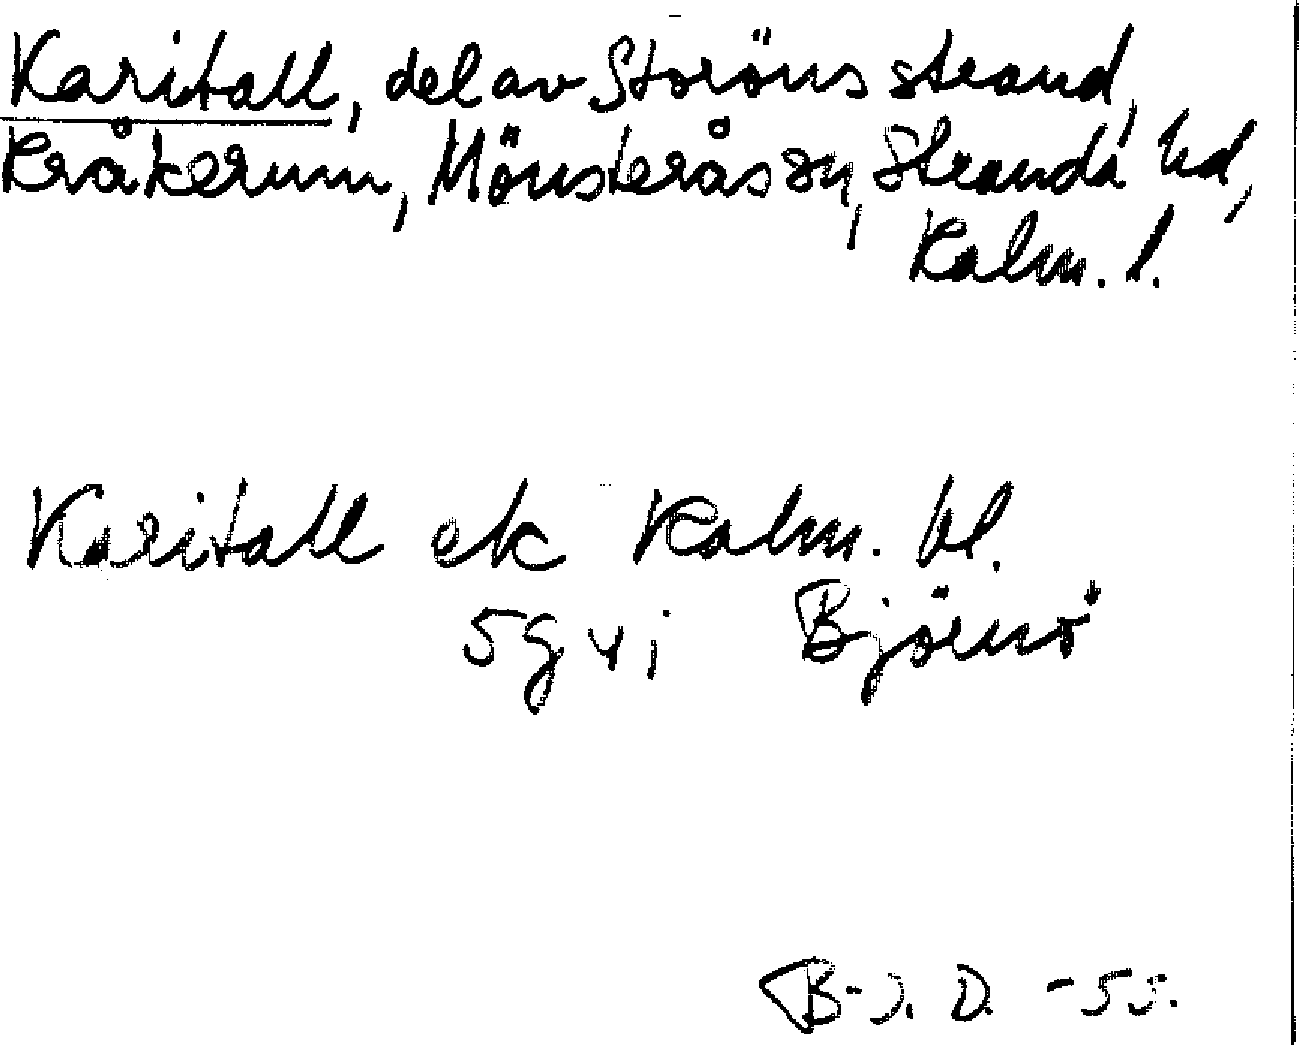 Karitall, del av Storöns strand,
Kråkerum, Mönsterås sn, Stranda hd,
Kalm. l.
Karitall ek Kalm. bl.
5g4i Björnö
B-J. D. -55.